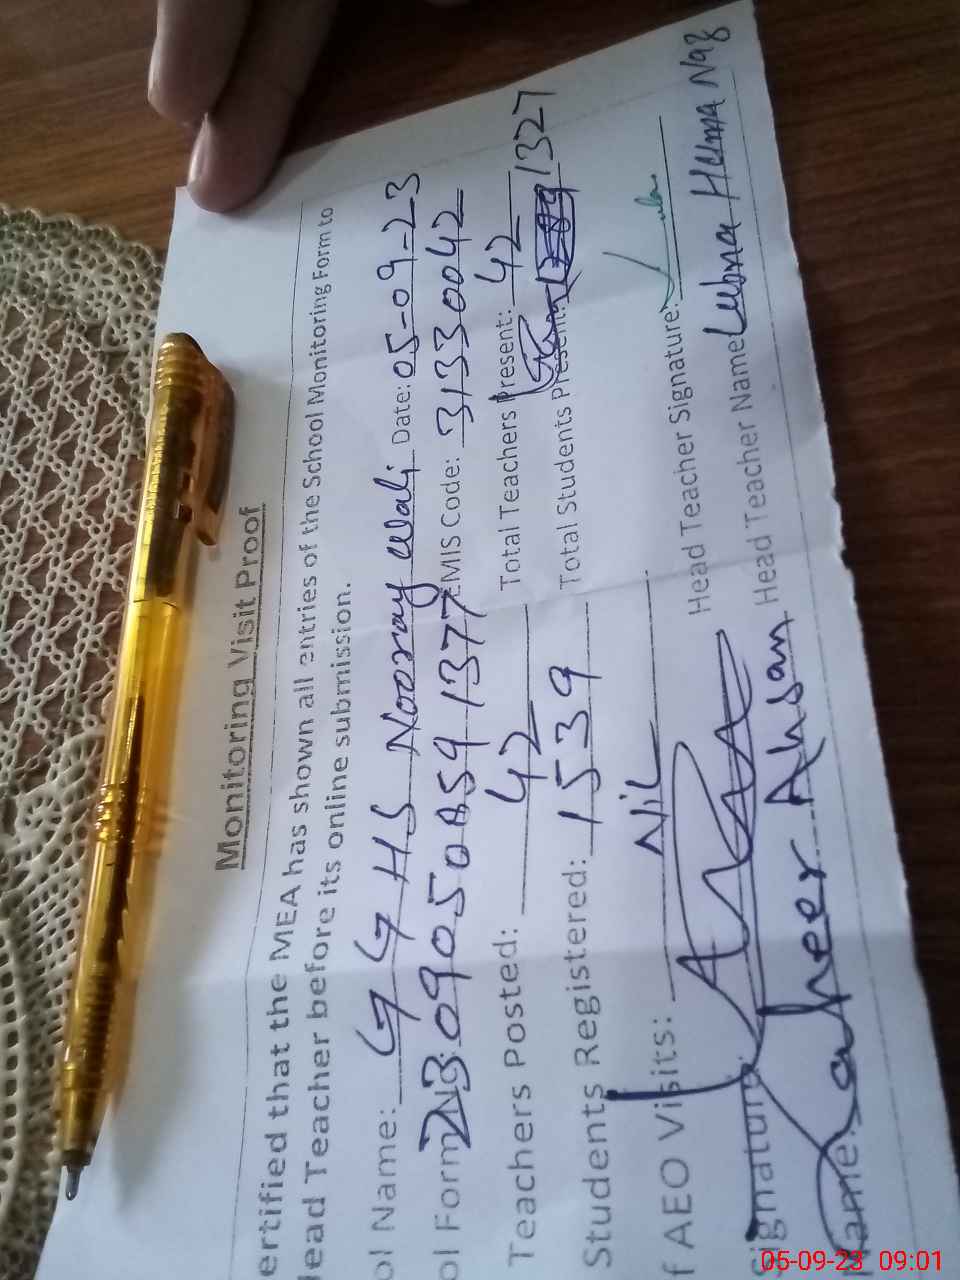 Monitoring Visit Proof
ertified that the MEA has shown all entries of the School Monitoring Form to
lead Teacher before its online submission.
ol Name: GGHS Nooray wali Date: 05-09-23
ol Form No: 2309050859137 EMIS Code: 31330042
Teachers Posted: 42 Total Teachers Present: 42
Students Registered: 1539 Total Students Present: 1327
f AEO Visits: Nil
Signature: Head Teacher Signature:
Name: Ahsan Head Teacher Name Lubna Huma Naz
05-09-23 09:01